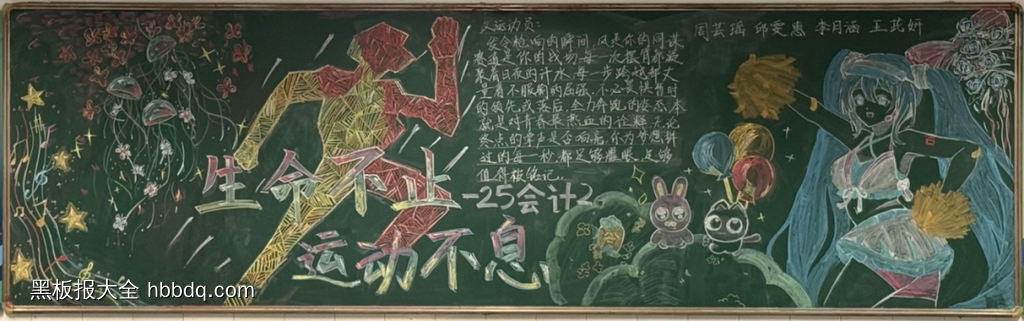 致运动员:
发令枪响的瞬间,风是你的同谋
赛道是你的战场每一次摆臂都裹
着不服输的倔强,不必畏惧暂时
的领先或落后,全力奔跑的姿态本
就是对青春最热血的诠释,无论
终点的掌声是否响亮,你为梦想拼
过的每一秒都足够耀眼,足够
值得被铭记。
周芸瑶 邱雯惠 李月涵 王芷妍
生命不止
-25会计2
运动不息
黑板报大全 hbbdq.com